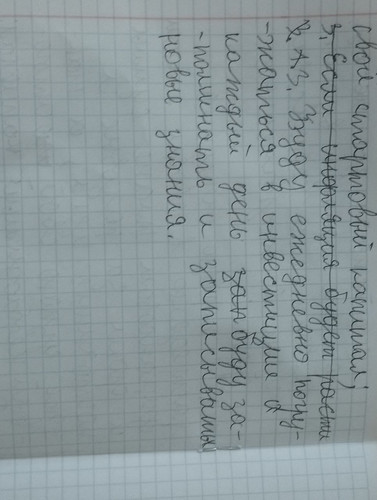 свой стартовый капитал;
3. Если инфляция будет расти
3. Буду ежедневно погру-
-жаться в инвестиции и
каждый день зап буду за-
-поминать и записывать
новые знания.